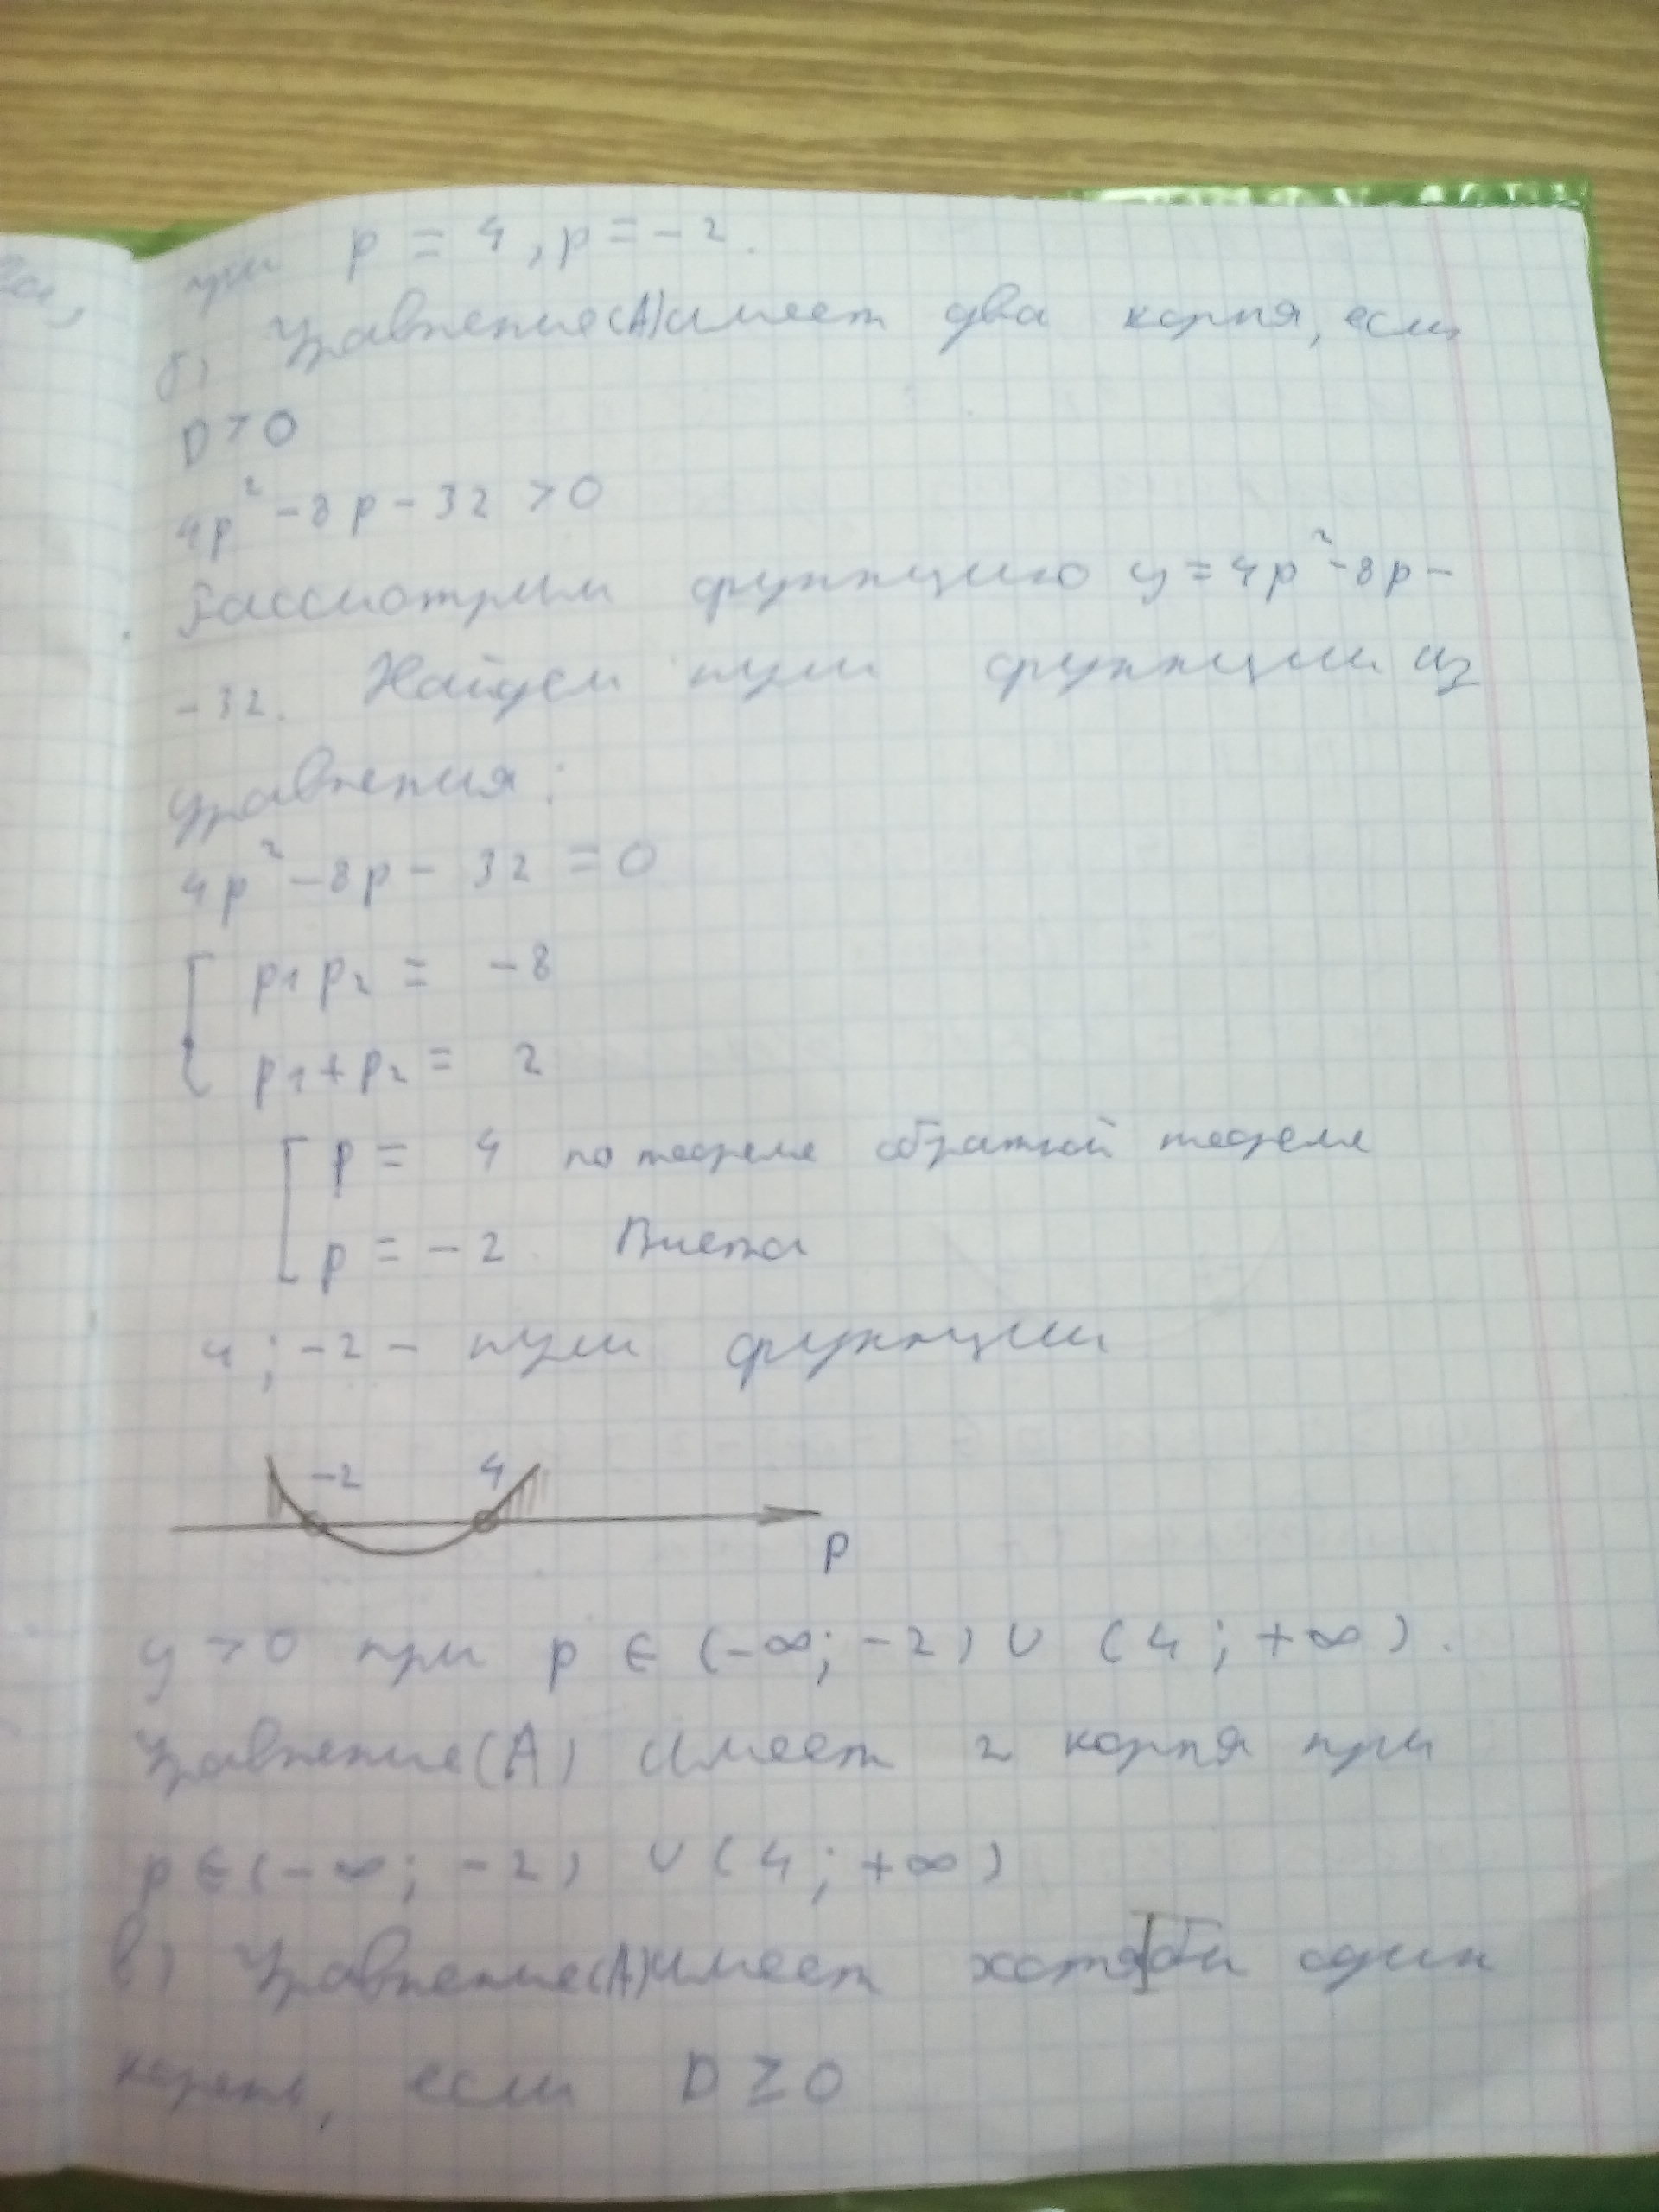 при p = 4, p = -2.
б) Уравнение(A) имеет два корня, если
D > 0
4p² - 8p - 32 > 0
Рассмотрим функцию y = 4p² - 8p -
- 32. Найдем нули функции из
уравнения:
4p² - 8p - 32 = 0
p1 p2 = -8
p1 + p2 = 2
p = 4 по теореме обратной теореме
p = -2 Виета
4 ; -2 - нули функции
-2 4
p
y > 0 при p ∈ (-∞; -2) ∪ (4 ; +∞).
Уравнение(A) имеет 2 корня при
p ∈ (-∞; -2) ∪ (4 ; +∞)
в) Уравнение(A) имеет хотя бы один
корень, если D ≥ 0